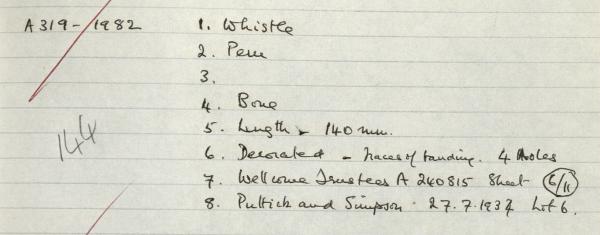 A 319 - 1982
1. Whistle
2. Peru
3.
4. Bone
5. Length - 140 mm.
6. Decorated - traces of banding. 4 Holes
144
7. Wellcome Trustees A 240815 Sheet 6/11
8. Puttick and Simpson. 27.7.1932 Lot 6.